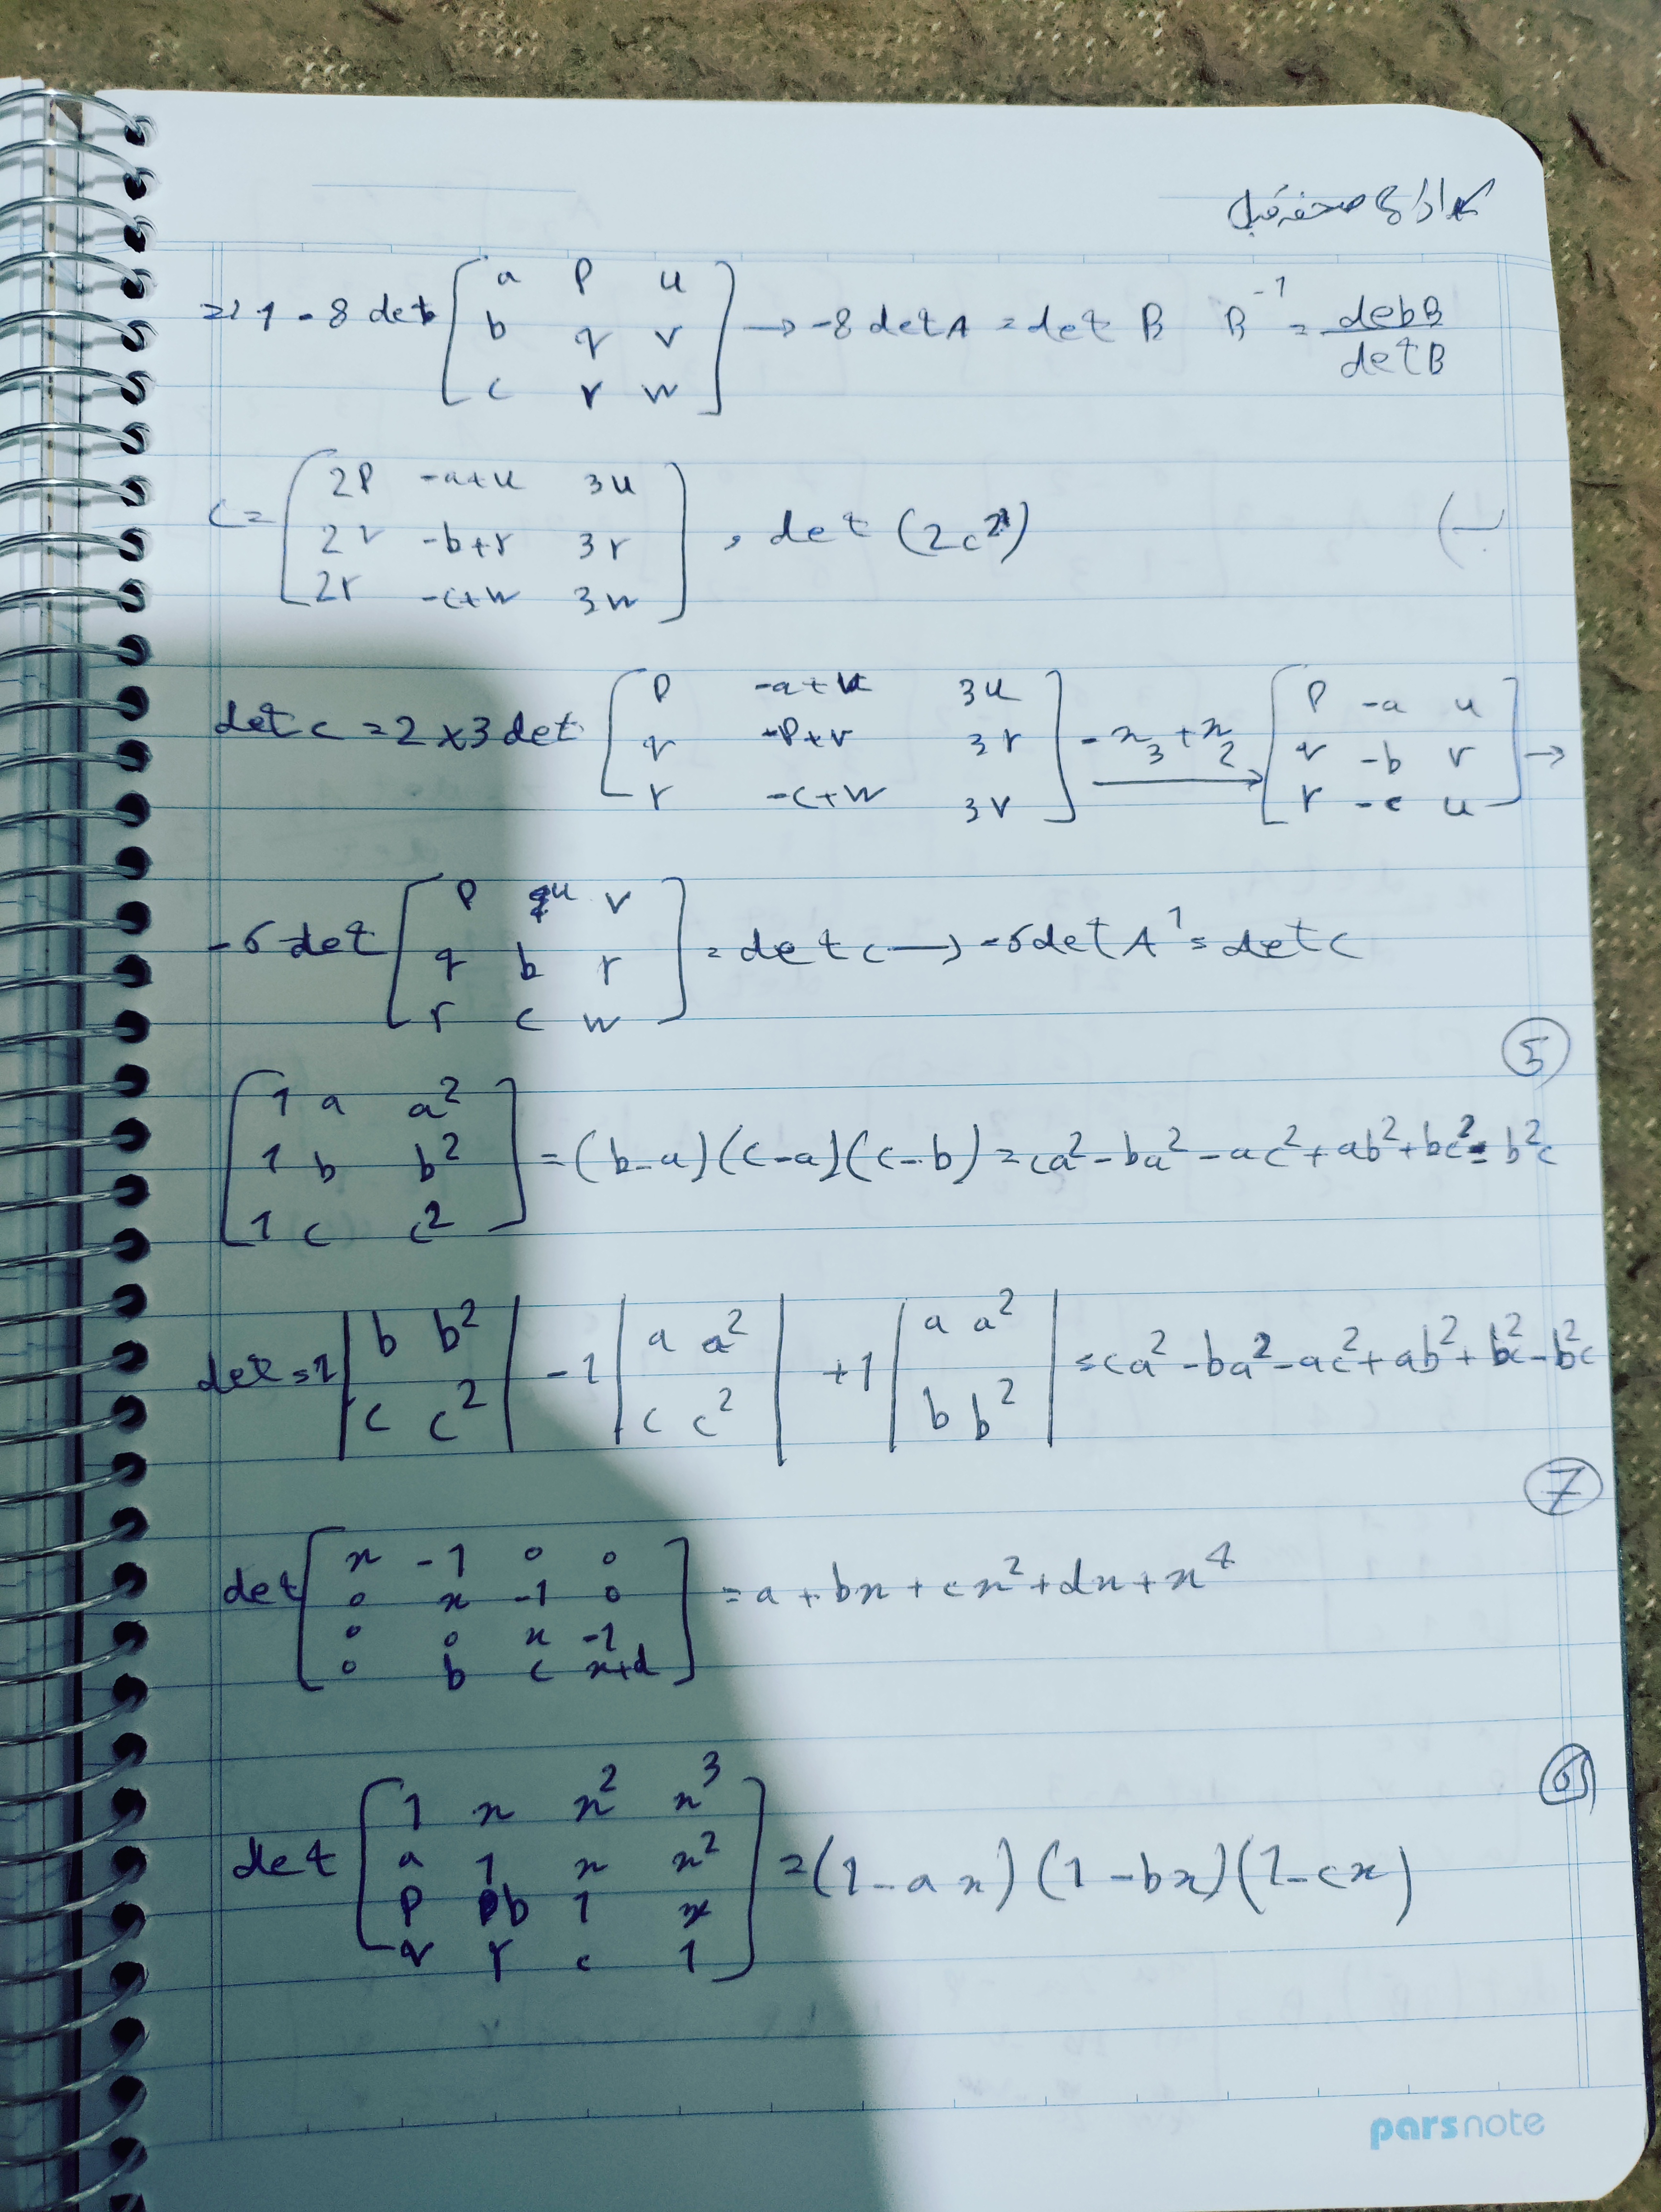 ادامه صفحه قبل
=> 1 - 8 det [ a p u ; b q v ; c r w ] → -8 det A = det B B⁻¹ = debB / detB
ب)
c = [ 2p -a+u 3u ; 2v -b+r 3r ; 2r -c+w 3w ] , det (2c⁻¹)
det c = 2 × 3 det [ p -a+u 3u ; q -p+v 3r ; r -c+w 3v ] -x₃+x₂ → [ p -a u ; q -b v ; r -c u ] →
-6 det [ p u v ; q b r ; r c w ] = det c → -6 det A¹ = det c
5
[ 1 a a² ; 1 b b² ; 1 c c² ] = (b-a)(c-a)(c-b) = ca² - ba² - ac² + ab² + bc² - b²c
det = 1 | b b² ; c c² | - 1 | a a² ; c c² | + 1 | a a² ; b b² | = ca² - ba² - ac² + ab² + bc² - b²c
7
det [ x -1 0 0 ; 0 x -1 0 ; 0 0 x -1 ; 0 b c x+d ] = a + bx + cx² + dx + x⁴
6
det [ 1 x x² x³ ; a 1 x x² ; p b 1 x ; q r c 1 ] = (1-ax)(1-bx)(1-cx)
parsnote